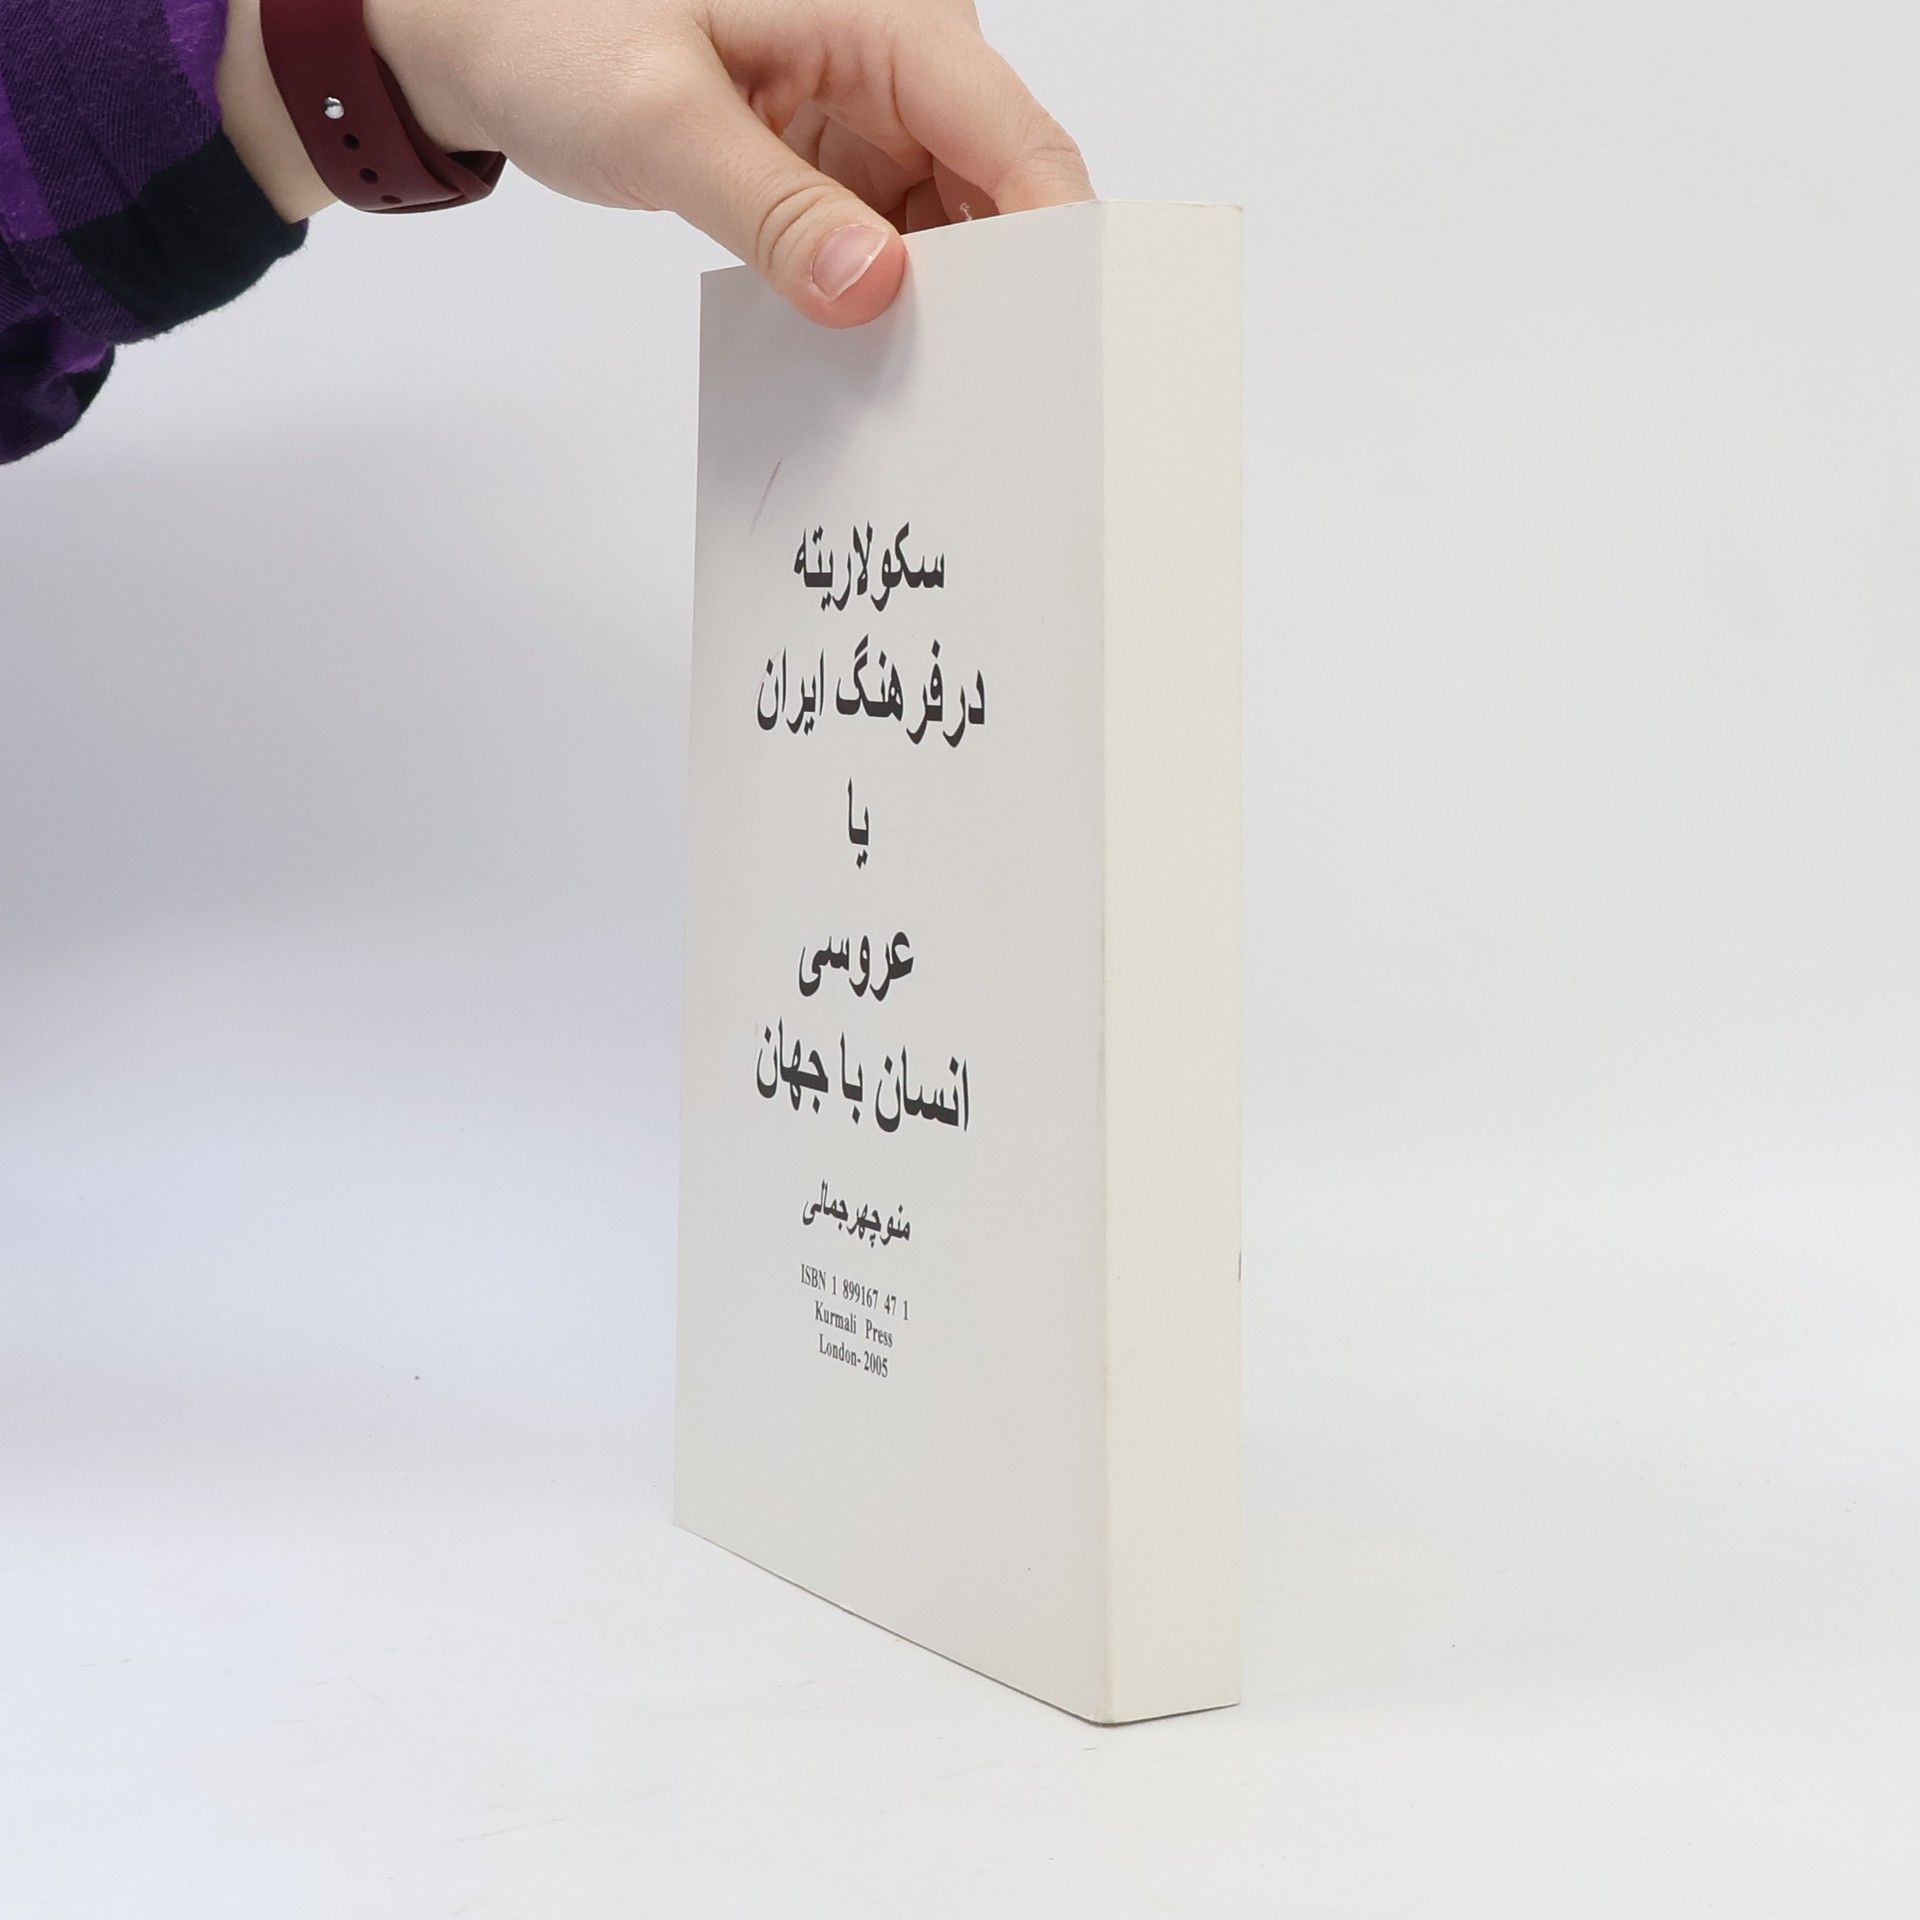 سکولاریته
در فرهنگ ایران
یا
عروسی
انسان با جهان
منوچهرجمالی
ISBN 1 899167 47 1
Kurmali Press
London- 2005